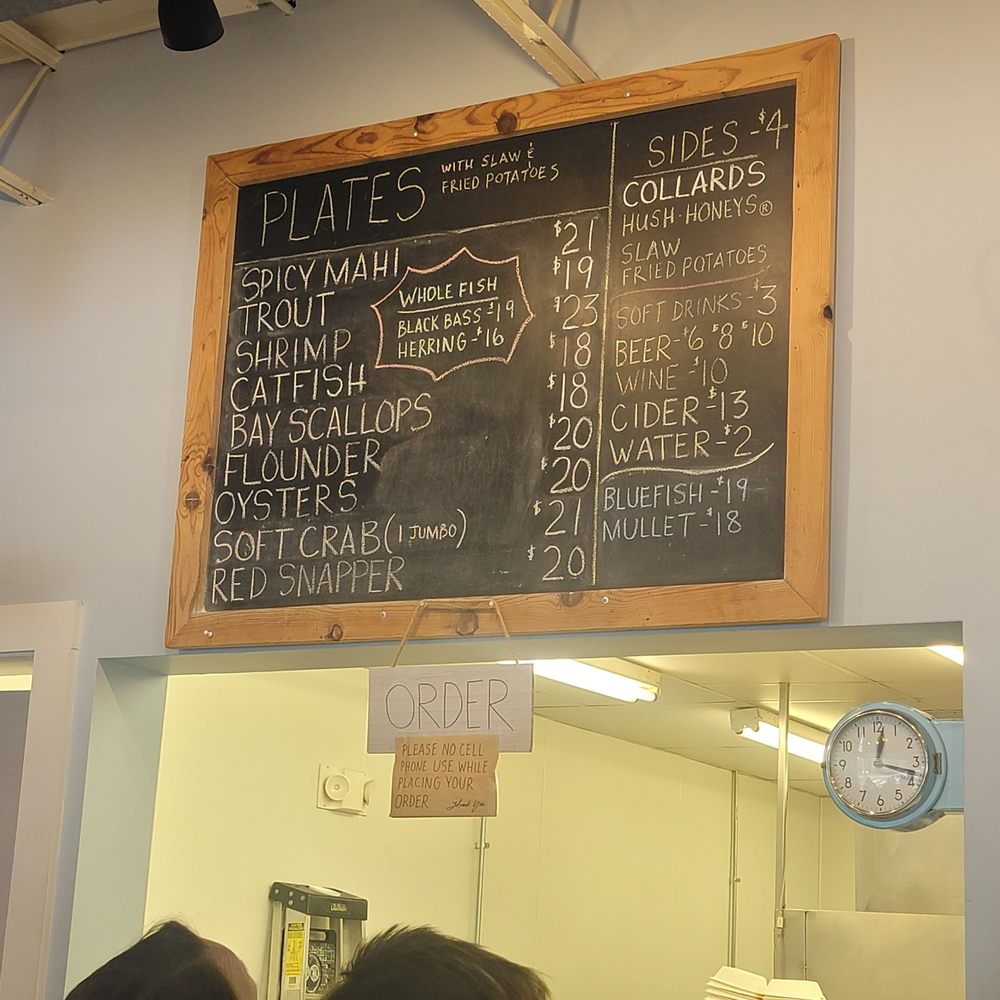 PLATES WITH SLAW &
FRIED POTATOES
SPICY MAHI $21
TROUT $19
SHRIMP $23
CATFISH $18
BAY SCALLOPS $18
FLOUNDER $20
OYSTERS $20
SOFT CRAB (1 JUMBO) $21
RED SNAPPER $20
WHOLE FISH
BLACK BASS - $19
HERRING - $16
SIDES - $4
COLLARDS
HUSH-HONEYS®
SLAW
FRIED POTATOES
SOFT DRINKS - $3
BEER - $6 $8 $10
WINE - $10
CIDER - $13
WATER - $2
BLUEFISH - $19
MULLET - $18
ORDER
PLEASE NO CELL
PHONE USE WHILE
PLACING YOUR
ORDER Thank You
12
1
2
3
4
5
6
7
8
9
10
11